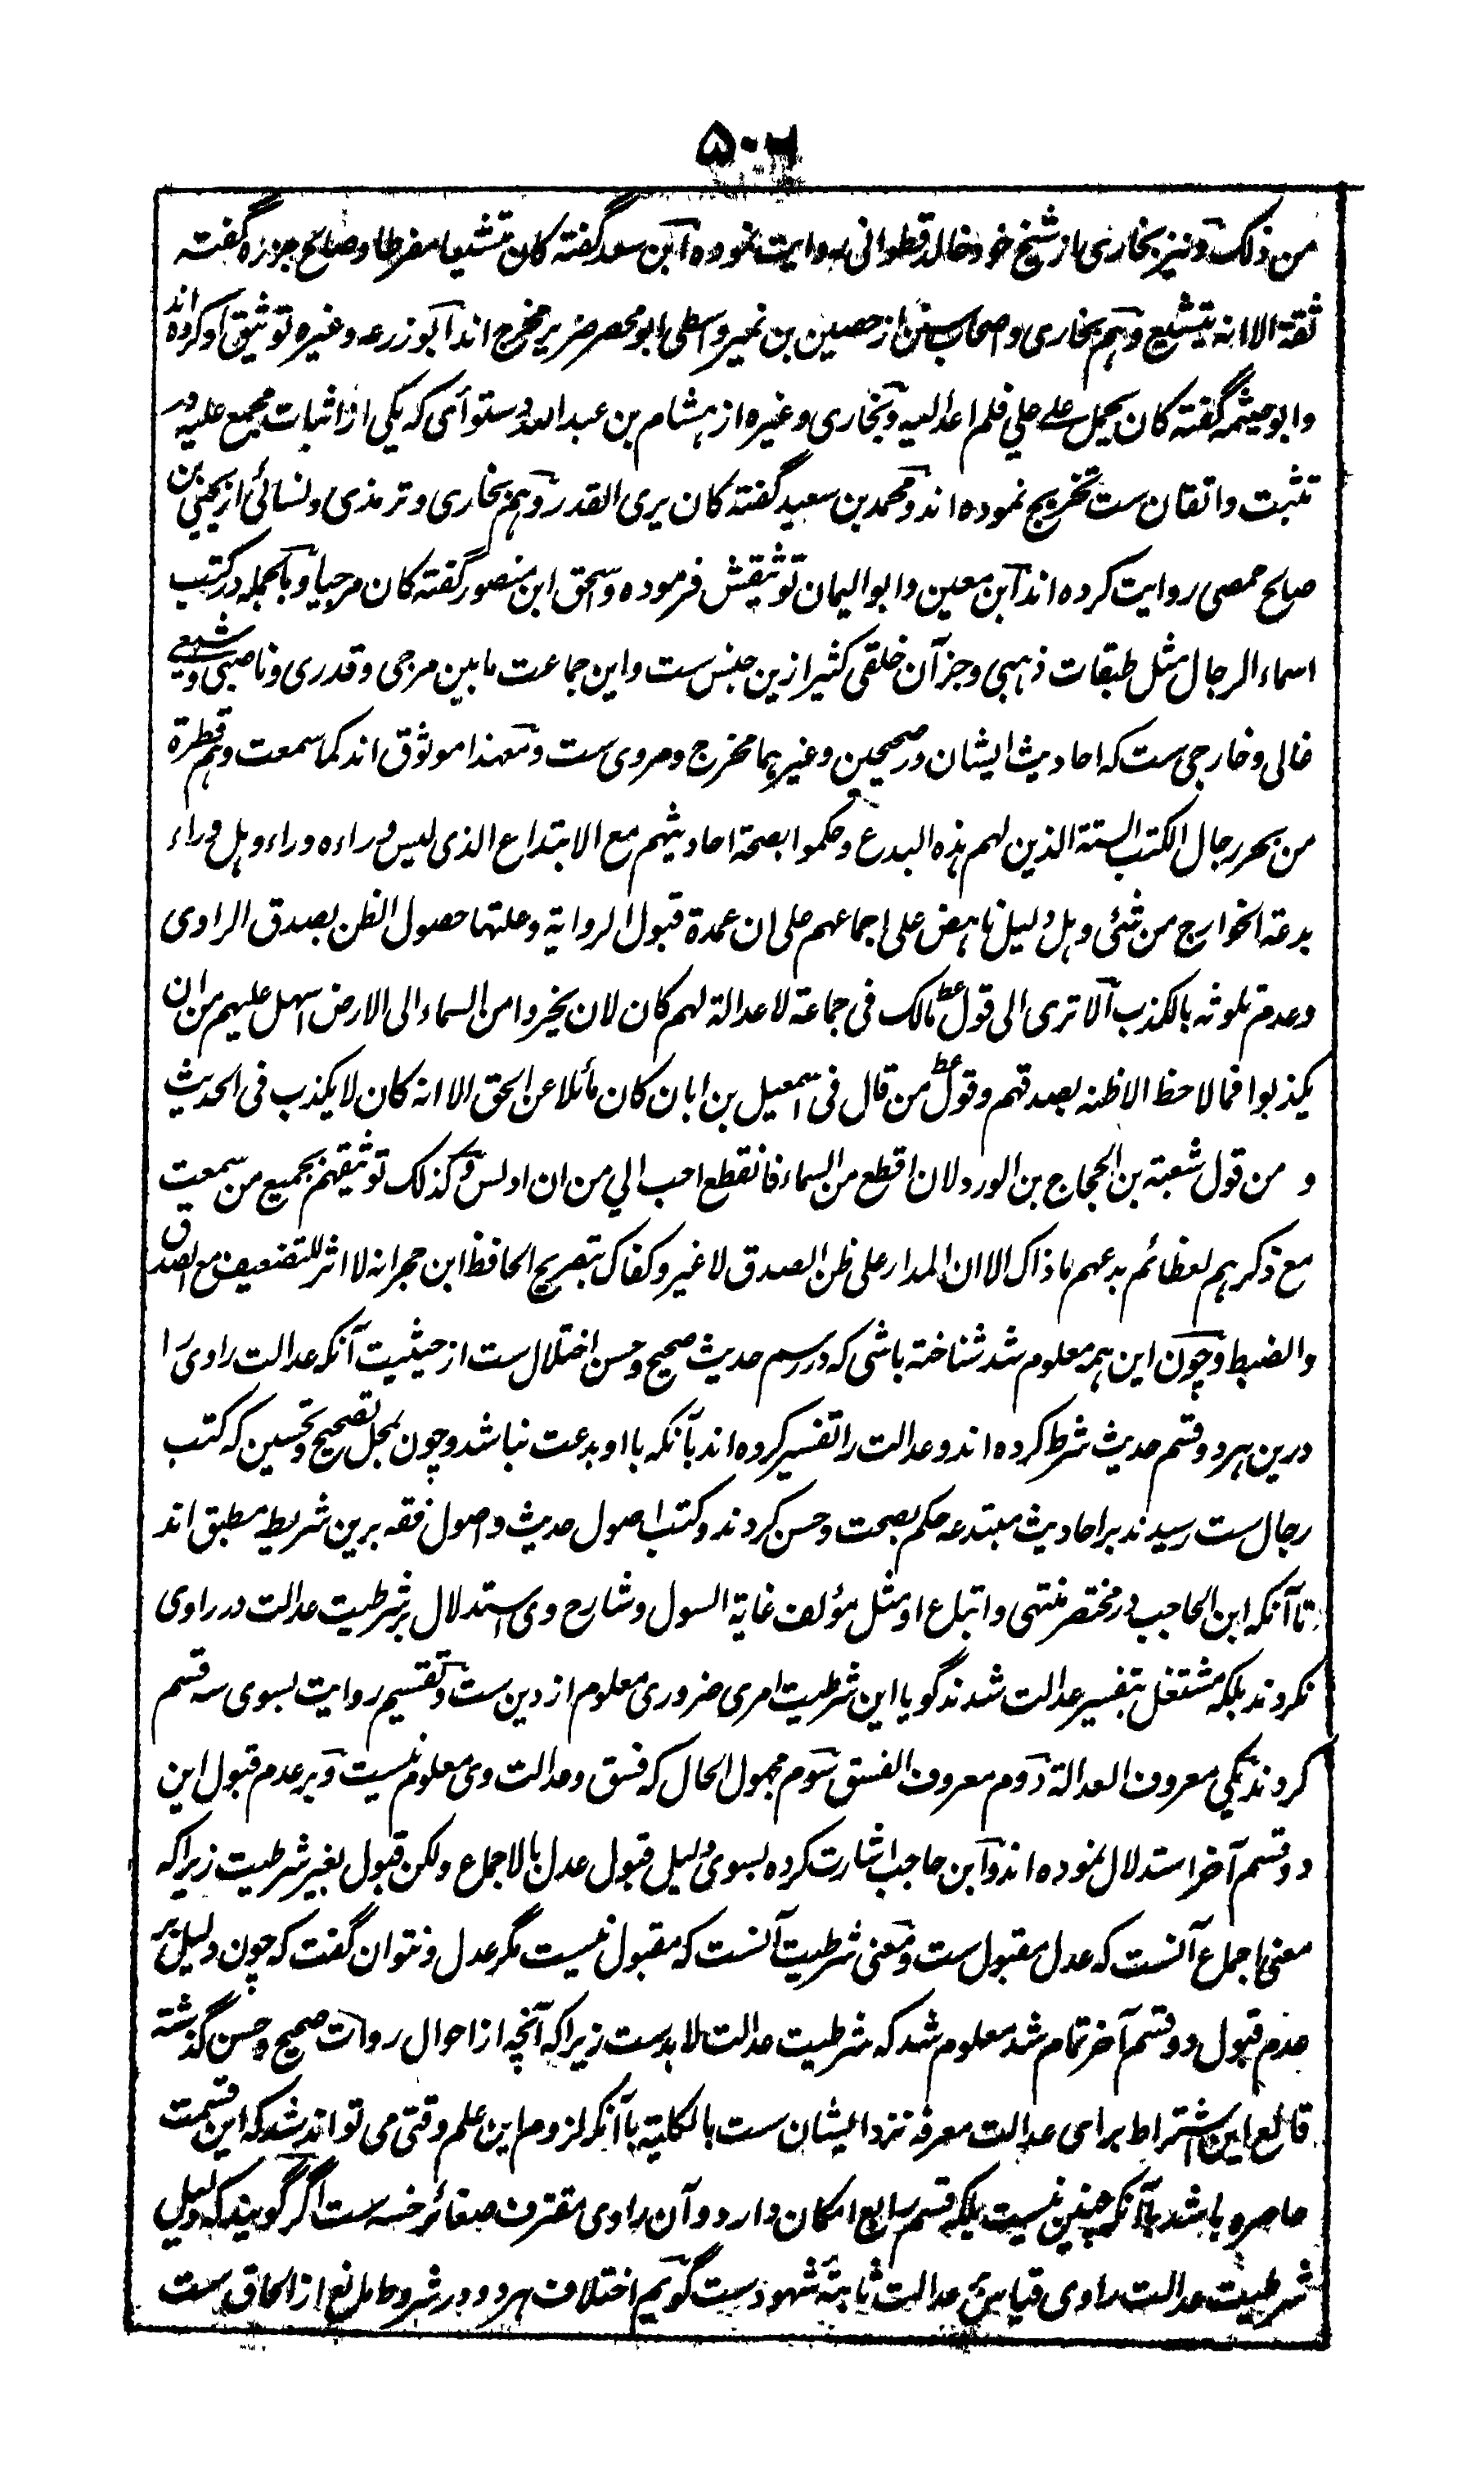 ۵۰۲
من ذلک و نیز بخاری از شیخ خود خالد قطوانی روایت نموده ابن سعد گفته کان متشیعا مفرطا و صالح جزره گفته
ثقة الا انه یتشیع و هم بخاری و اصحاب سنن از حصین بن نمیر واسطی ابو محصن ضریر مخرج اند ابو زرعه و غیره توثیق او کرده اند
و ابو خیثمه گفته کان یحمل علی علی فلم اعد الیه و بخاری و غیره از هشام بن عبد الله دستوائی که یکی از اثبات مجمع علیه در
تثبت و اتقان ست تخریج نموده اند و محمد بن سعید گفته کان یری القدر و هم بخاری و ترمذی و نسائی از یحیی بن
صالح حمصی روایت کرده اند ابن معین و ابو الیمان توثیقش فرموده و اسحق ابن منصور گفته کان مرجیا و بالجمله در کتب
اسماء الرجال مثل طبقات ذهبی و جز آن خلقی کثیر ازین جنس ست و این جماعت ما بین مرجی و قدری و ناصبی و شیعی
غالی و خارجی ست که احادیث ایشان در صحیحین و غیرهما مخرج و مروی ست و معهذا موثوق اند کما سمعت و هم قطرة
من بحر رجال الکتب الستة الذین لهم هذه البدع و حکموا بصحة احادیثهم مع الابتداع الذی لیس وراءه وراء و هل وراء
بدعة الخوارج من شئی و هل دلیل ناهض علی اجماعهم علی ان عمدة قبول الروایة و علتها حصول الظن بصدق الراوی
و عدم تلوثه بالکذب الا تری الی قول مالک فی جماعة لا عدالة لهم کان لان یخروا من السماء الی الارض اسهل علیهم من ان
یکذبوا فما لاحظ الا ظنه بصدقهم و قول من قال فی اسمعیل بن ابان کان مائلا عن الحق الا انه کان لا یکذب فی الحدیث
و من قول شعبة بن الحجاج بن الورد لان اقطع من السماء فانقطع احب الی من ان ادلس و کذلک توثیقهم بجمیع من سمعت
مع ذکرهم لعظائم بدعهم ما ذاک الا ان المدار علی ظن الصدق لا غیر و کفاک بتصریح الحافظ ابن حجر انه لا اثر للتضعیف مع الصدق
و الضبط و چون این همه معلوم شد شناخته باشی که در رسم حدیث صحیح و حسن اختلال ست از حیثیت آنکه عدالت راوی را
درین هر دو قسم حدیث شرط کرده اند و عدالت را تفسیر کرده اند بآنکه با او بدعت نباشد و چون بمحل تصحیح و تحسین که کتب
رجال ست رسیدند بر احادیث مبتدعه حکم بصحت و حسن کردند و کتب اصول حدیث و اصول فقه برین شریطه مطبق اند
تا آنکه ابن الحاجب در مختصر منتهی و اتباع او مثل مؤلف غایة السول و شارح وی استدلال بر شرطیت عدالت در راوی
نکردند بلکه مشتغل بتفسیر عدالت شدند گویا این شرطیت امری ضروری معلوم از دین ست و تقسیم روایت بسوی سه قسم
کردند یکی معروف العدالة دوم معروف الفسق سوم مجهول الحال که فسق و عدالت وی معلوم نیست و بر عدم قبول این
دو قسم آخر استدلال نموده اند و ابن حاجب اشارت کرده بسوی دلیل قبول عدل بالاجماع و لکن قبول بغیر شرطیت زیرا که
معنی اجماع آنست که عدل مقبول ست و معنی شرطیت آنست که مقبول نیست مگر عدل و نتوان گفت که چون دلیل بر
عدم قبول دو قسم آخر تمام شد معلوم شد که شرطیت عدالت لابدست زیرا که آنچه از احوال روات صحیح و حسن گذشته
قالع این اشتراط برای عدالت معرفه نزد ایشان ست بالکلیه با آنکه لزوم این علم وقتی می تواند شد که این قسمت
حاصره باشد با آنکه چنین نیست بلکه قسم رابع امکان دارد و آن راوی مقترف صغائر خسه است اگر گویند که دلیل
شرطیت عدالت راوی قیاس بر عدالت ثابته شهودست گویم اختلاف هر دو در شروط مانع از الحاق ست